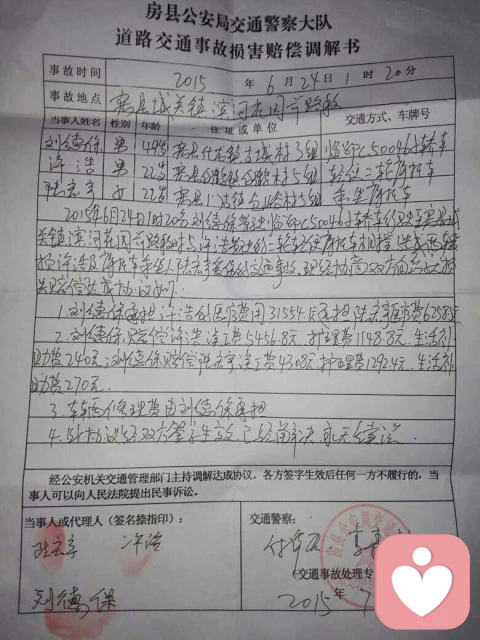 房县公安局交通警察大队
道路交通事故损害赔偿调解书
事故时间 2015 年 6 月 24 日 1 时 20 分
事故地点 房县城关镇滨河花园前路段
当事人姓名 性别 年龄 住址或单位 交通方式、车牌号
刘德保 男 村3组 临鄂C50046小轿车
许浩 男 22岁 房县 村5组 二轮摩托车
陆 女 22岁 房县 村5组 乘坐摩托车
2015年6月24日1时20分刘德保驾驶临鄂C50046小轿车 至房县城
关镇滨河花园前路段时与许浩驾驶的二轮 摩托车相撞,造成两车
损许浩及摩托车乘坐人陆 受伤的交通事故。现经协商双方自愿达 损
失赔偿 协议如下:
1.刘德保承担许浩的医疗费用31554.
2.刘德保赔偿许浩误工费5456.8元.护理费1148.8元.生活补
助费240元;刘德保赔偿陆 误工费4308元.护理费1292.4元.生活补
助费270元.
3.车辆修理费由刘德保承担
4.此协议经双方签字生效,已经解决.
经公安机关交通管理部门主持调解达成协议,各方签字生效后任何一方不履行的,当
事人可以向人民法院提出民事诉讼。
当事人或代理人(签名捺指印): 交通警察:
许浩
(交通事故处理专
刘德保
2015 年 7